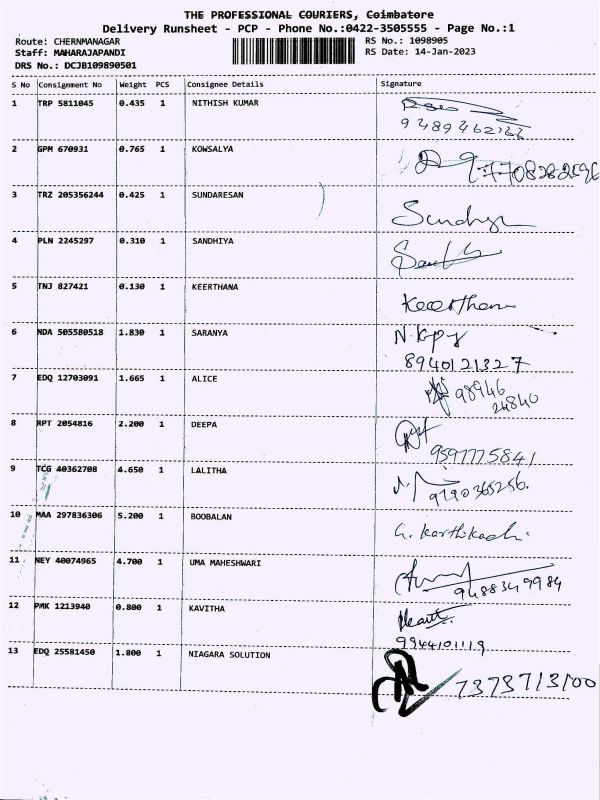 THE PROFESSIONAL COURIERS, Coimbatore
Delivery Runsheet - PCP - Phone No.:0422-3505555 - Page No.:1
Route: CHERNMANAGAR RS No.: 1098905
Staff: MAHARAJAPANDI RS Date: 14-Jan-2023
DRS No.: DCJB109890501
S No Consignment No Weight PCS Consignee Details Signature
1 TRP 5811045 0.435 1 NITHISH KUMAR
2 GPM 670931 0.765 1 KOWSALYA
3 TRZ 205356244 0.425 1 SUNDARESAN
4 PLN 2245297 0.310 1 SANDHIYA
5 TNJ 827421 0.130 1 KEERTHANA Keerthana
6 NDA 505580518 1.830 1 SARANYA
8940121327
7 EDQ 12703091 1.665 1 ALICE 98946
24840
8 RPT 2054816 2.200 1 DEEPA
9597775841
9 TCG 40362708 4.650 1 LALITHA
9190365256.
10 MAA 297836306 5.200 1 BOOBALAN
11 NEY 40074965 4.700 1 UMA MAHESHWARI
9488349984
12 PMK 1213940 0.800 1 KAVITHA
9944101119
13 EDQ 25581450 1.800 1 NIAGARA SOLUTION
7373713100